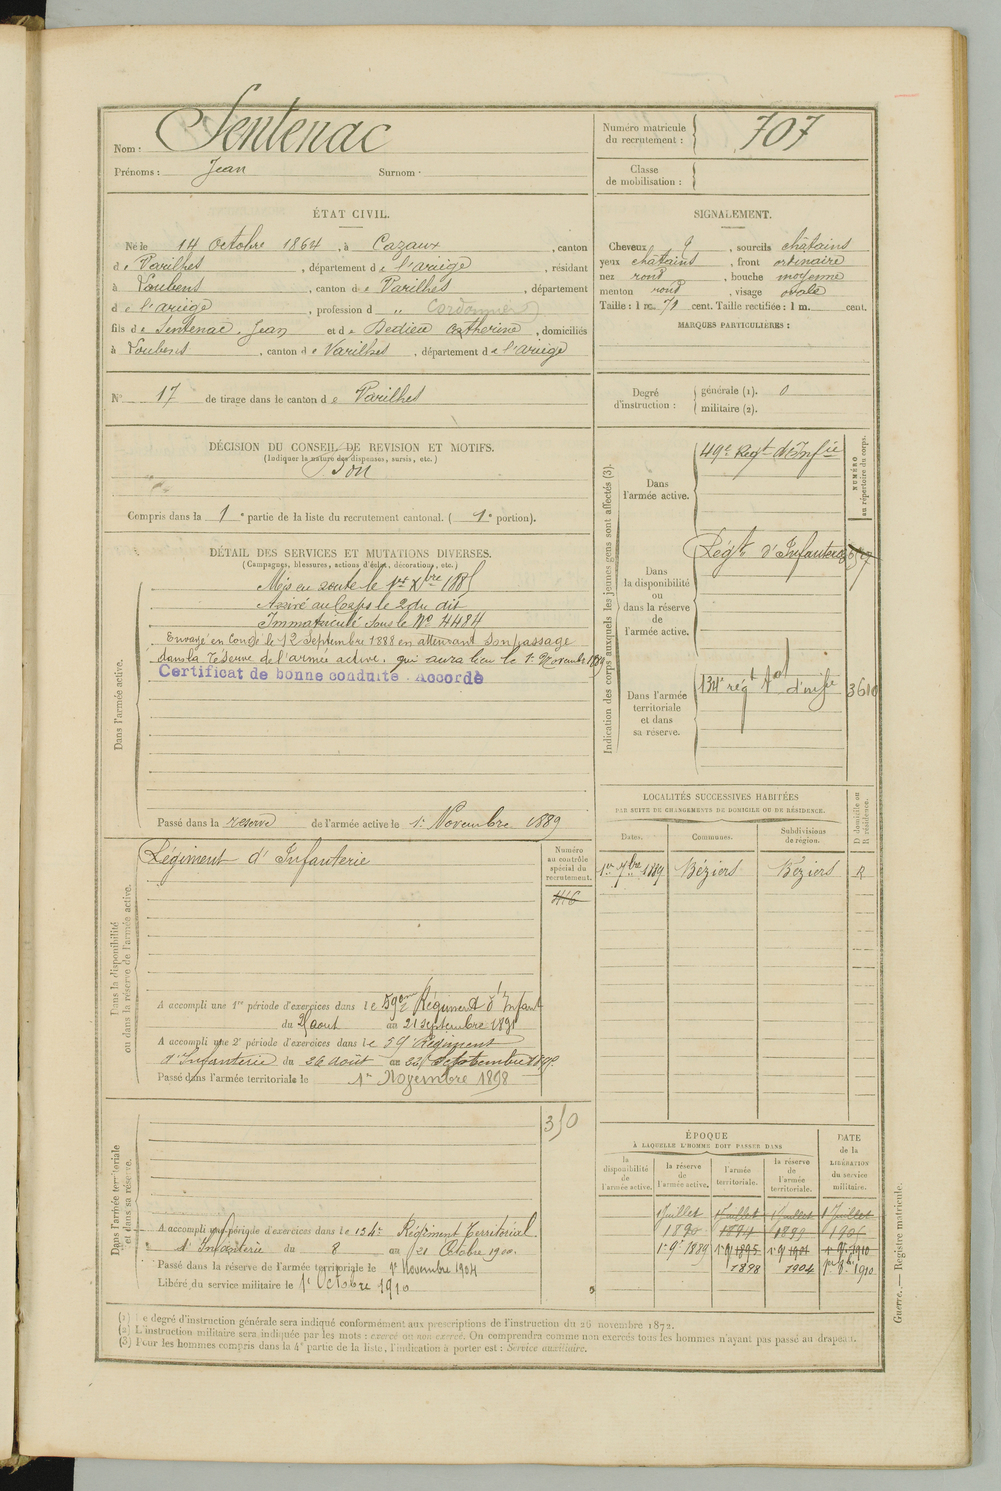 Nom : Sentenac
Prénoms : Jean Surnom :
Numéro matricule du recrutement : 707
Classe de mobilisation :
ÉTAT CIVIL.
Né le 14 Octobre 1864, à Cazaux, canton
de Varilhes, département de l'ariège, résidant
à Loubens, canton de Varilhes, département
de l'ariège, profession d " Cordonnier
fils de Sentenac, Jean et de Dedieu Catherine, domiciliés
à Loubens, canton de Varilhes, département de l'ariège
N° 17 de tirage dans le canton de Varilhes
SIGNALEMENT.
Cheveux, sourcils châtains
yeux châtains, front ordinaire
nez rond, bouche moyenne
menton rond, visage ovale
Taille : 1 m. 71 cent. Taille rectifiée : 1 m. cent.
MARQUES PARTICULIÈRES :
Degré d'instruction : générale (1). 0
militaire (2).
DÉCISION DU CONSEIL DE REVISION ET MOTIFS.
(Indiquer la nature des dispenses, sursis, etc.)
Bon
Compris dans la 1e partie de la liste du recrutement cantonal. ( 1e portion).
DÉTAIL DES SERVICES ET MUTATIONS DIVERSES.
(Campagnes, blessures, actions d'éclat, décorations, etc.)
Dans l'armée active.
Mis en route le 1er Xbre 1885
Arrivé au Corps le 2 du dit
Immatriculé sous le No 4484
Envoyé en Congé le 12 Septembre 1888 en attendant son passage
dans la réserve de l'armée active, qui aura lieu le 1er Novembre 1889
Certificat de bonne conduite - Accordé
Passé dans la réserve de l'armée active le 1er Novembre 1889
Indication des corps auxquels les jeunes gens sont affectés (3).
NUMÉRO au répertoire du corps.
Dans l'armée active.
49e Regt d'Infie
Dans la disponibilité ou dans la réserve de l'armée active.
Régt d'Infanterie
Dans l'armée territoriale et dans sa réserve.
134e régt tal d'infie 3610
LOCALITÉS SUCCESSIVES HABITÉES
PAR SUITE DE CHANGEMENTS DE DOMICILE OU DE RÉSIDENCE.
Dates. Communes. Subdivisions de région. D domicile ou R résidence.
1er 7bre 1889 Béziers Béziers R
Dans la disponibilité ou dans la réserve de l'armée active.
Régiment d'Infanterie
Numéro au contrôle spécial du recrutement.
416
A accompli une 1re période d'exercices dans le 59e Régiment d'Infant
du 25 aout au 21 septembre 1891
A accompli une 2e période d'exercices dans le 59e Régiment
d'Infanterie du 26 août au 22 Septembre
Passé dans l'armée territoriale le 1er Novembre 1898
Dans l'armée territoriale et dans sa réserve.
350
A accompli une période d'exercices dans le 134e Régiment Territorial
d'Infanterie du 8 au 21 Octobre 1900.
Passé dans la réserve de l'armée territoriale le 1er Novembre 1904
Libéré du service militaire le 1er Octobre 1910
ÉPOQUE
À LAQUELLE L'HOMME DOIT PASSER DANS
DATE de la LIBÉRATION du service militaire.
la disponibilité de l'armée active. la réserve de l'armée active. l'armée territoriale. la réserve de l'armée territoriale.
1 Juillet 1 Juillet 1 Juillet 1 Juillet
1890 1894 1899 1905
1er 9e 1889 1er 9e 1895 1er 9e 1901 1er 9e 1910
1898 1904 1er 8bre 1910
(1) Le degré d'instruction générale sera indiqué conformément aux prescriptions de l'instruction du 26 novembre 1872.
(2) L'instruction militaire sera indiquée par les mots : exercé ou non exercé. On comprendra comme non exercés tous les hommes n'ayant pas passé au drapeau.
(3) Pour les hommes compris dans la 4e partie de la liste, l'indication à porter est : Service auxiliaire.
Guerre. — Registre matricule.